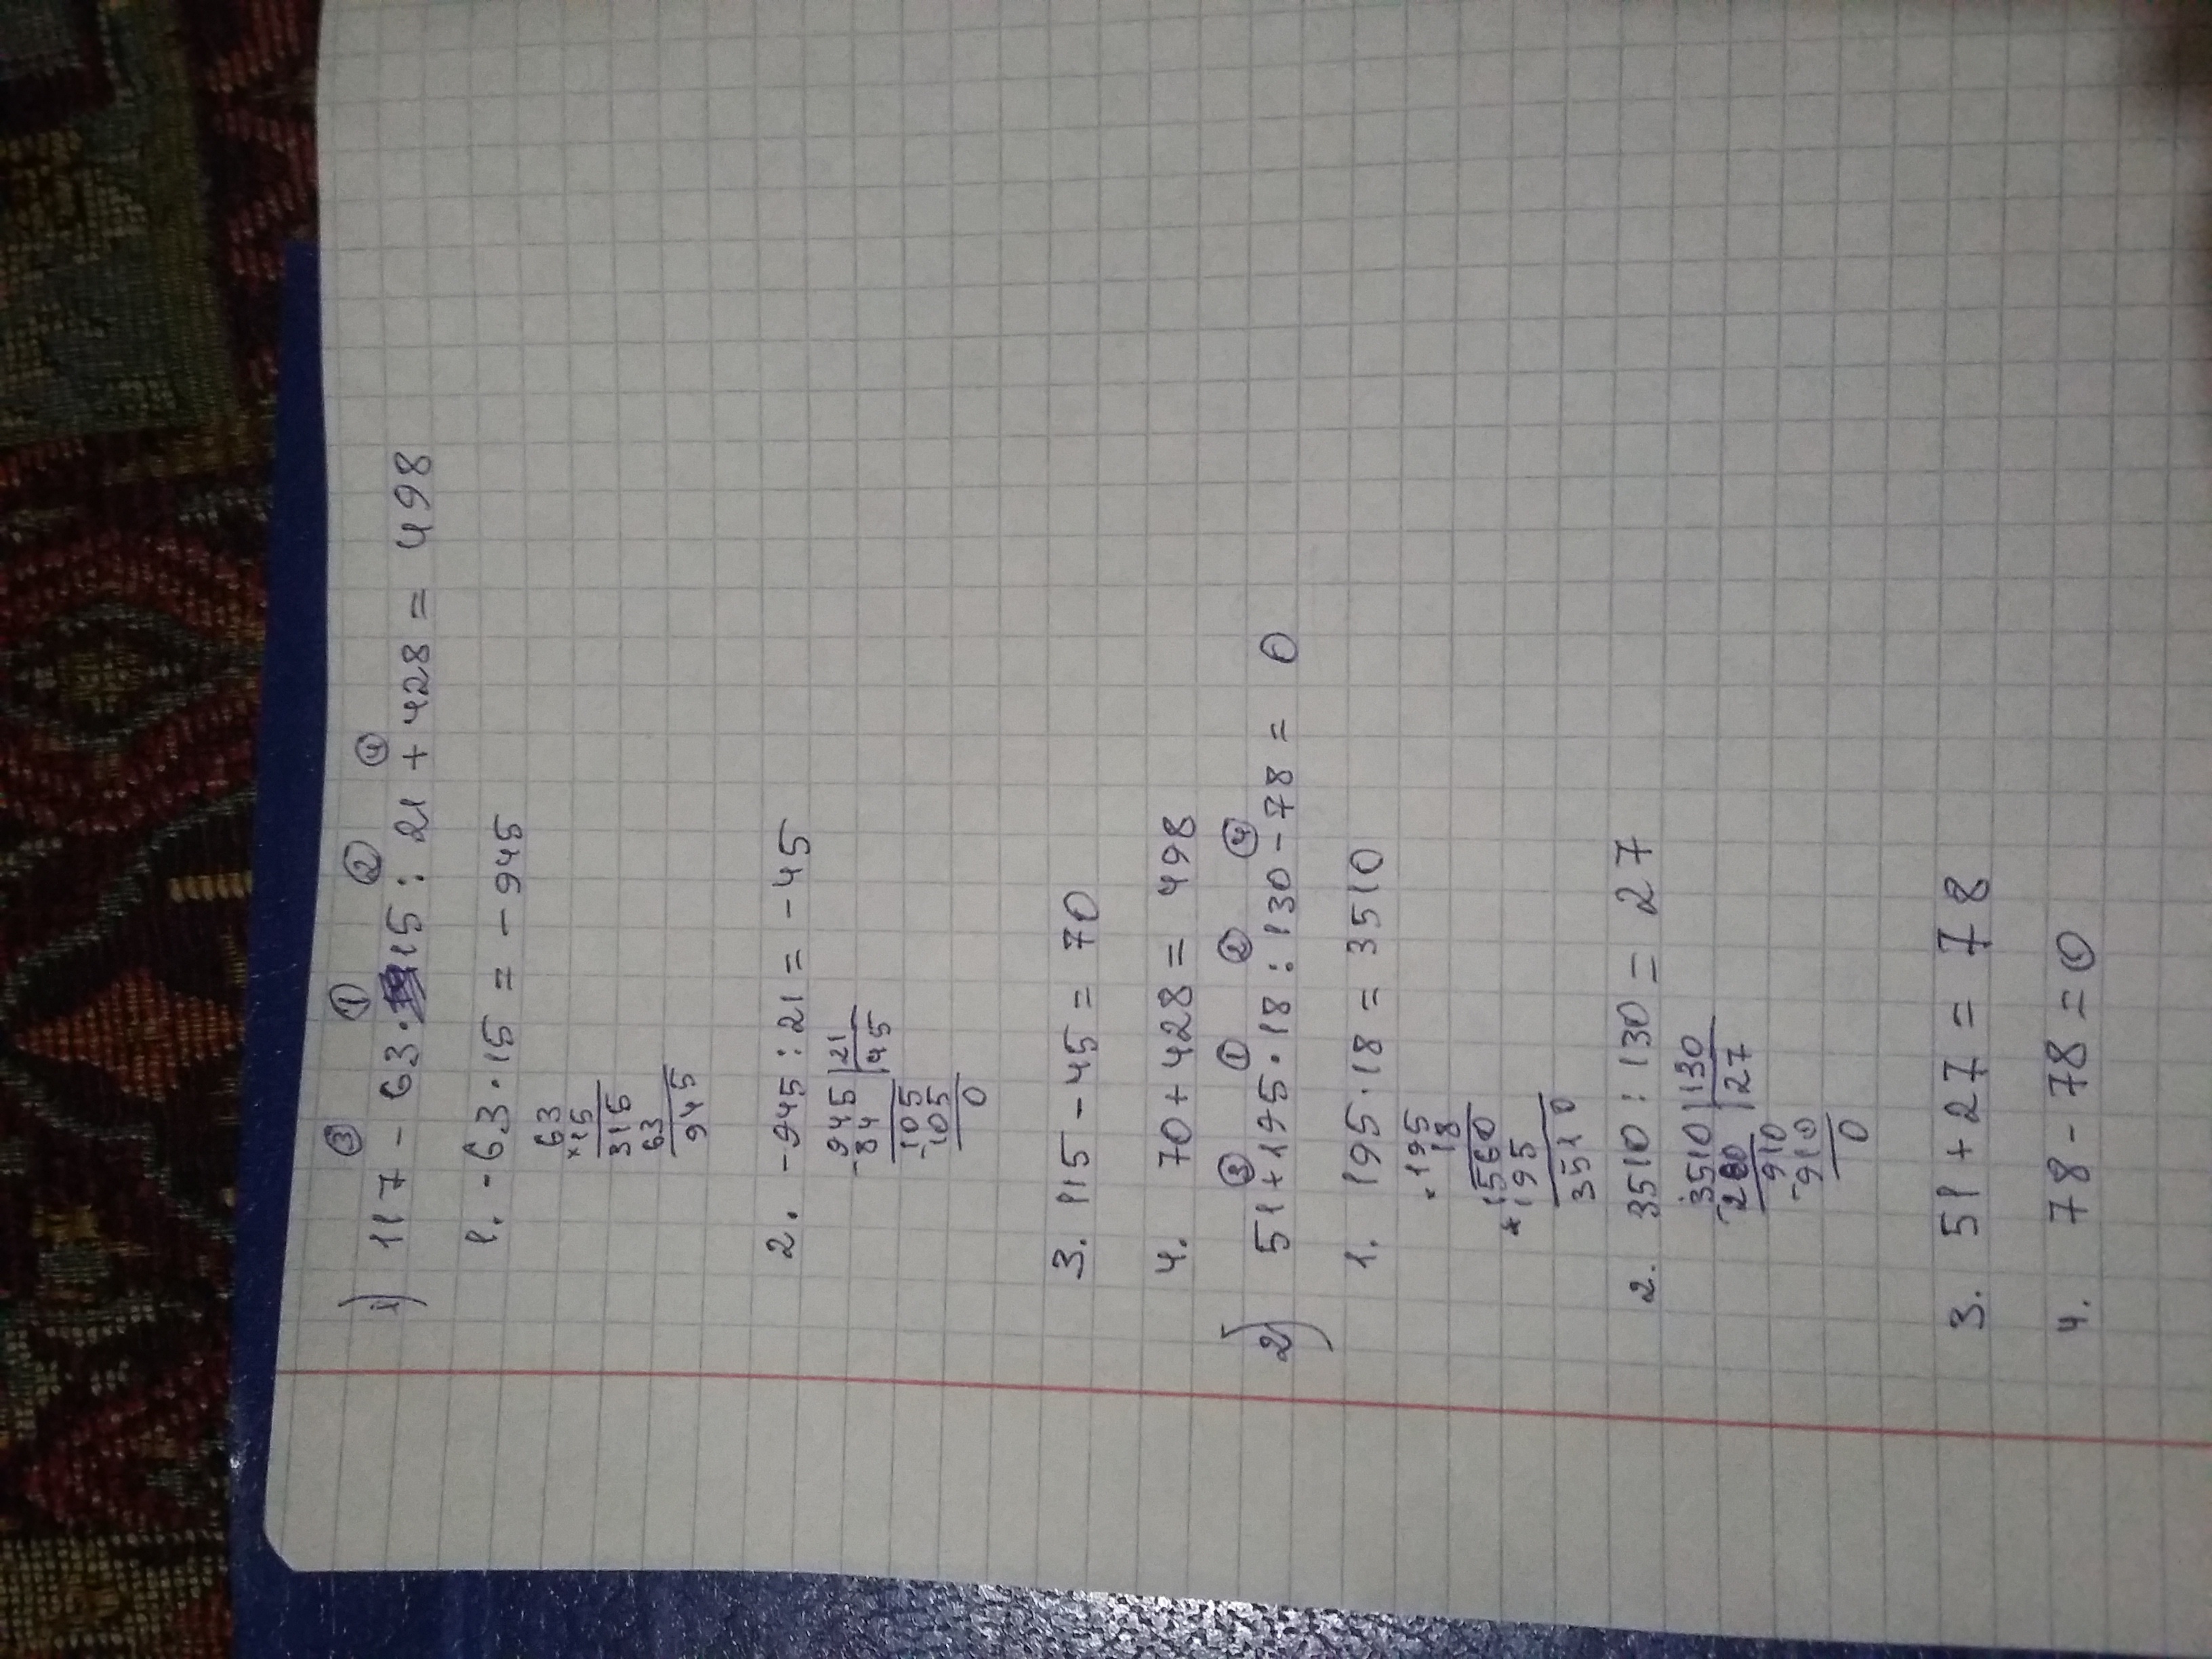 ③ ① ② ④
1) 117 - 63 · 15 : 21 + 428 = 498
1. - 63 · 15 = - 945
63
×15
315
63
945
2. - 945 : 21 = - 45
-945 |21
84 |45
-105
105
0
3. 115 - 45 = 70
4. 70 + 428 = 498
③ ① ② ④
2) 51 + 195 · 18 : 130 - 78 = 0
1. 195 · 18 = 3510
×195
18
+1560
195
3510
2. 3510 : 130 = 27
-3510 |130
260 |27
-910
910
0
3. 51 + 27 = 78
4. 78 - 78 = 0